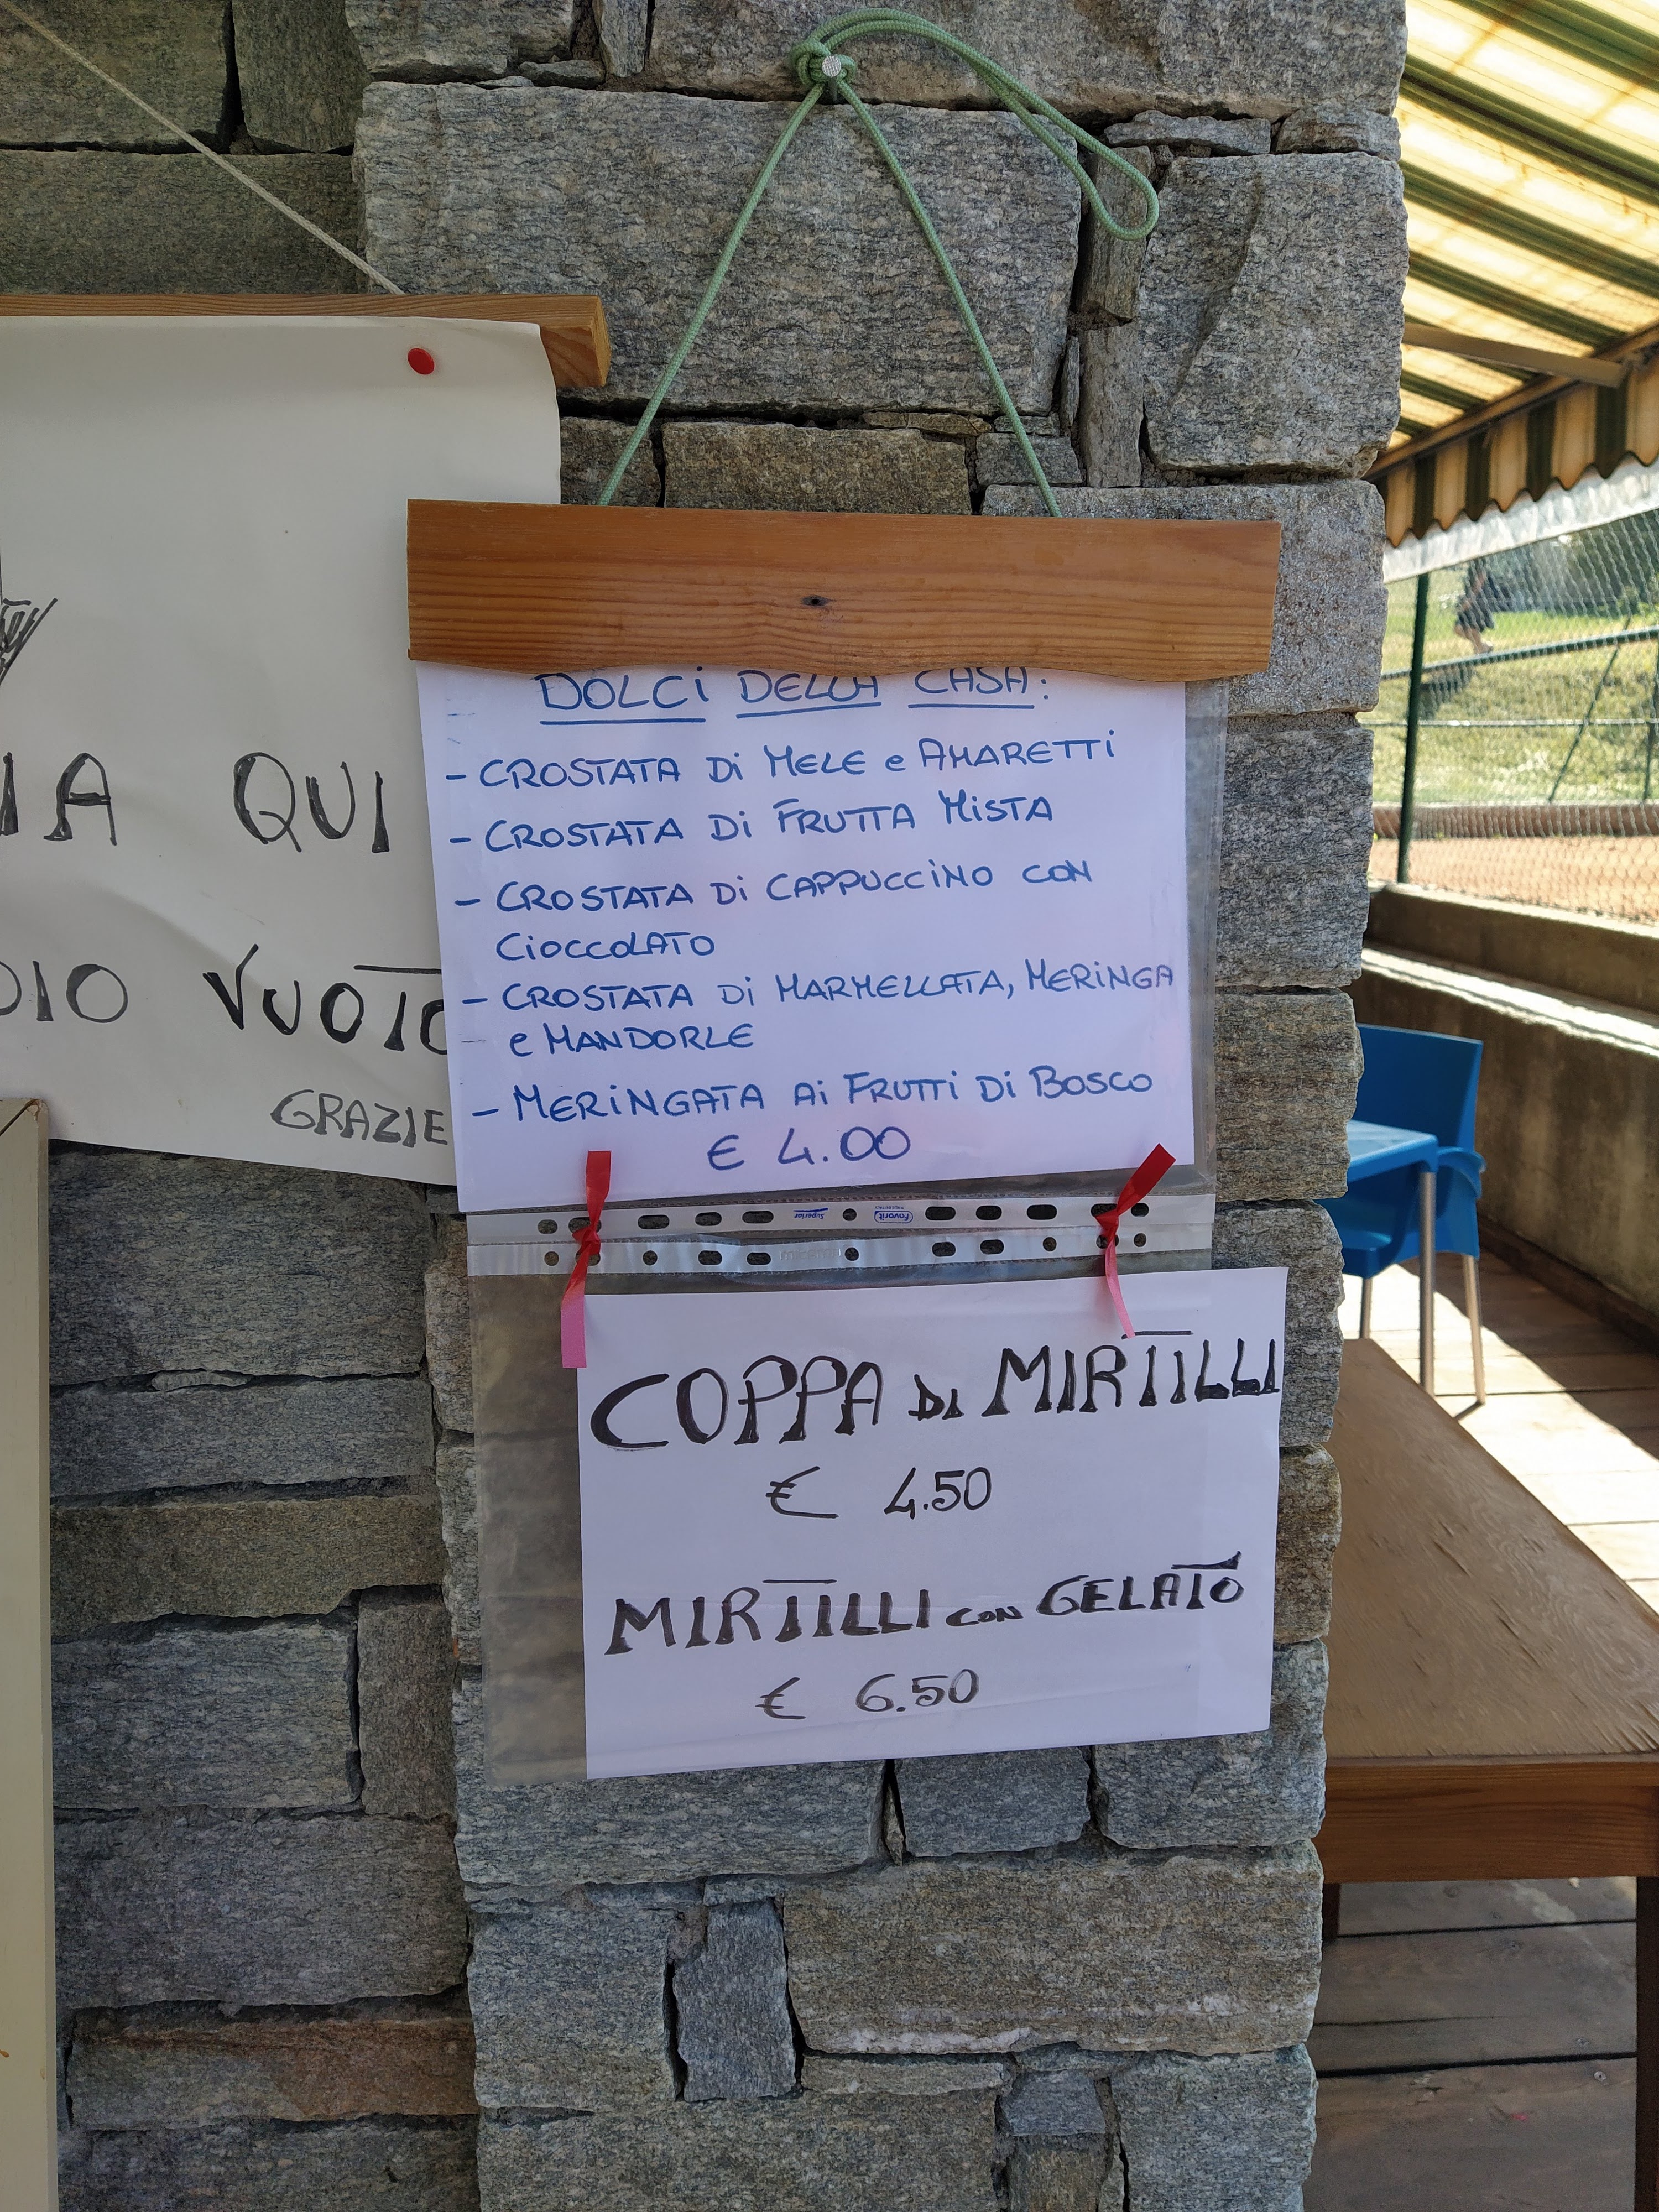 QUI
VUOTO
GRAZIE
DOLCI DELLA CASA:
- CROSTATA Di MELE e AMARETTI
- CROSTATA Di FRUTTA MISTA
- CROSTATA Di CAPPUCCiNO CON
CiOCCOLATO
- CROSTATA Di MARMELLATA, MERiNGA
e MANDORLE
- MERiNGATA Ai FRUTTi Di BOSCO
€ 4.00
Superior Favorit
COPPA DI MIRTILLI
€ 4.50
MIRTILLI CON GELATO
€ 6.50